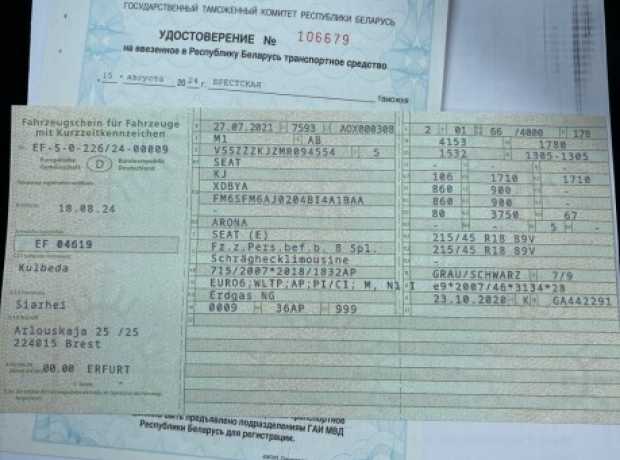 ГОСУДАРСТВЕННЫЙ ТАМОЖЕННЫЙ КОМИТЕТ РЕСПУБЛИКИ БЕЛАРУСЬ
УДОСТОВЕРЕНИЕ № 106679
на ввезенное в Республику Беларусь транспортное средство
15 августа 2024 г. БРЕСТСКАЯ
Таможня
Fahrzeugschein für Fahrzeuge
mit Kurzzeitkennzeichen
EF-S-0-226/24-00009
Europäische Gemeinschaft D Bundesrepublik Deutschland
18.08.24
EF 04619
Kulbeda
Siarhei
Arlouskaja 25 /25
224015 Brest
00.00 ERFURT
27.07.2021 7593 AOX000308
M1 AB
VSSZZZKJZMR094554 5
SEAT
KJ
XDBYA
FM6SFM6AJ0204BI4A1BAA
-
ARONA
SEAT (E)
Fz.z.Pers.bef.b. 8 Spl.
Schräghecklimousine
715/2007*2018/1832AP
EURO6;WLTP;AP;PI/CI; M, N1 I
Erdgas NG
0009 36AP 999
2 01 66 /4000 178
4153 1780
1532 1305-1305
-
106 1710 1710
860 900 -
860 900 -
80 3750 67
- - 5 -
215/45 R18 89V
215/45 R18 89V
-
GRAU/SCHWARZ 7/9
e9*2007/46*3134*28
23.10.2020 K GA442291
быть предъявлено подразделениям ГАИ МВД
Республики Беларусь для регистрации.